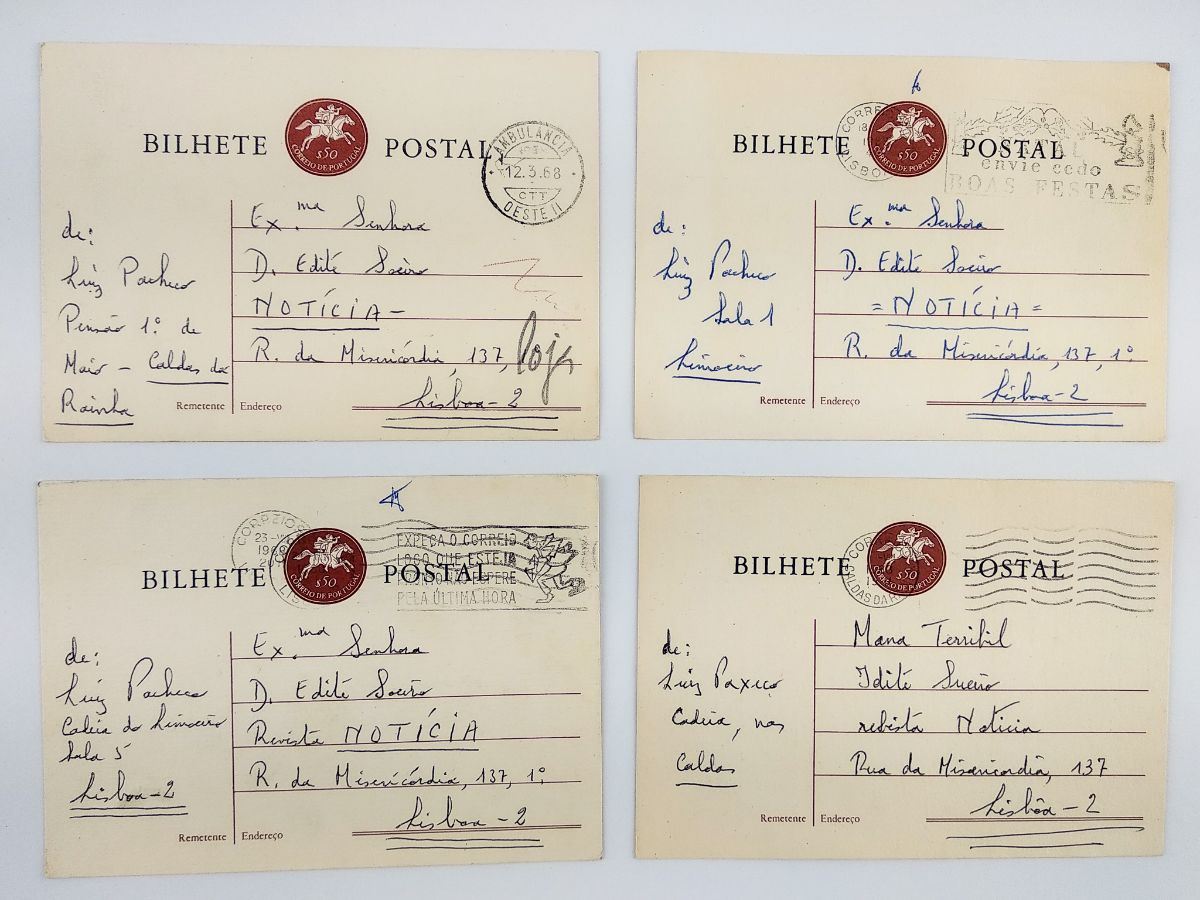 BILHETE POSTAL
$50
CORREIO DE PORTUGAL
AMBULANCIA
12.3.68
CTT
OESTE II
de:
Luiz Pacheco
Pensão 1º de
Maio - Caldas da
Rainha
Ex.ma Senhora
D. Edite Soeiro
NOTÍCIA -
R. da Misericórdia, 137,
Lisboa - 2
Remetente
Endereço
BILHETE POSTAL
$50
CORREIO DE PORTUGAL
CORRE
18
LISBO
envie cedo
BOAS FESTAS
de:
Luiz Pacheco
Sala 1
Limoeiro
Ex.ma Senhora
D. Edite Soeiro
= NOTÍCIA =
R. da Misericórdia, 137, 1º
Lisboa - 2
Remetente
Endereço
BILHETE POSTAL
$50
CORREIO DE PORTUGAL
CORREIO
23
EXPEÇA O CORREIO
LOGO QUE ESTEJA
PRONTO NÃO ESPERE
PELA ÚLTIMA HORA
de:
Luiz Pacheco
Cadeia do Limoeiro
Sala 5
Lisboa - 2
Ex.ma Senhora
D. Edite Soeiro
Revista NOTÍCIA
R. da Misericórdia, 137, 1º
Lisboa - 2
Remetente
Endereço
BILHETE POSTAL
$50
CORREIO DE PORTUGAL
COR
CALDAS DA RA
de:
Luiz Paxeco
Cadeia, nas
Caldas
Mana Terribil
Idite Sueiro
rebista Noticia
Rua da Misaricordia, 137
Lisbôa - 2
Remetente
Endereço